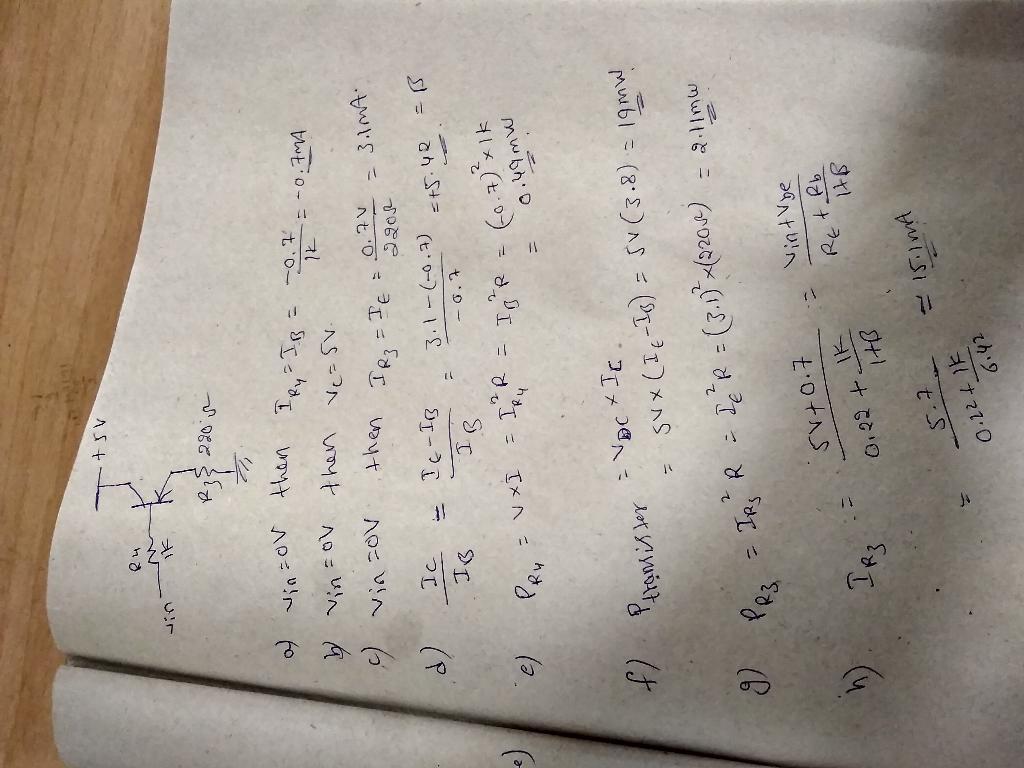 +5V
R4
Vin
1K
R3
220Ω
a) Vin=0V then IR4 = IB = -0.7/1K = -0.7mA
b) Vin=0V then Vc=5V.
c) Vin=0V then IR3 = IE = 0.7V/220Ω = 3.1mA.
d) IC/IB = IE-IB/IB = 3.1-(-0.7)/-0.7 = +5.42 = β
e) PR4 = V×I = IR4²R = IB²R = (-0.7)²×1K
= 0.49mW
f) Ptransister = VDC × IC
= 5V×(IE-IB) = 5V(3.8) = 19mW.
g) PR3 = IR3²R = IE²R = (3.1)²×(220Ω) = 2.11mW
h) IR3 = 5V+0.7/0.22+1K/1+β = Vin+Vbe/RE+Rb/1+β
= 5.7/0.22+1K/6.42 = 15.1mA
e)